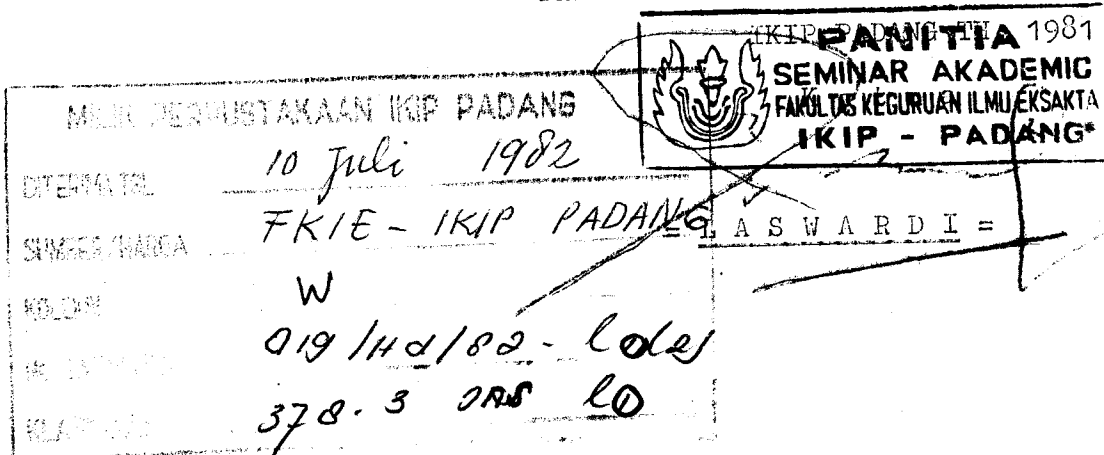 IKIP PADANG TH. 1981
PANITIA
SEMINAR AKADEMIC
FAKULTAS KEGURUAN ILMU EKSAKTA
IKIP - PADANG
= LASWARDI =
MILIK PERPUSTAKAAN IKIP PADANG
DITERIMA TGL. 10 Juli 1982
SUMBER/HARGA FKIE - IKIP PADANG
KOLEKSI W
019/Hd/82-
KLASIFIKASI 378.3